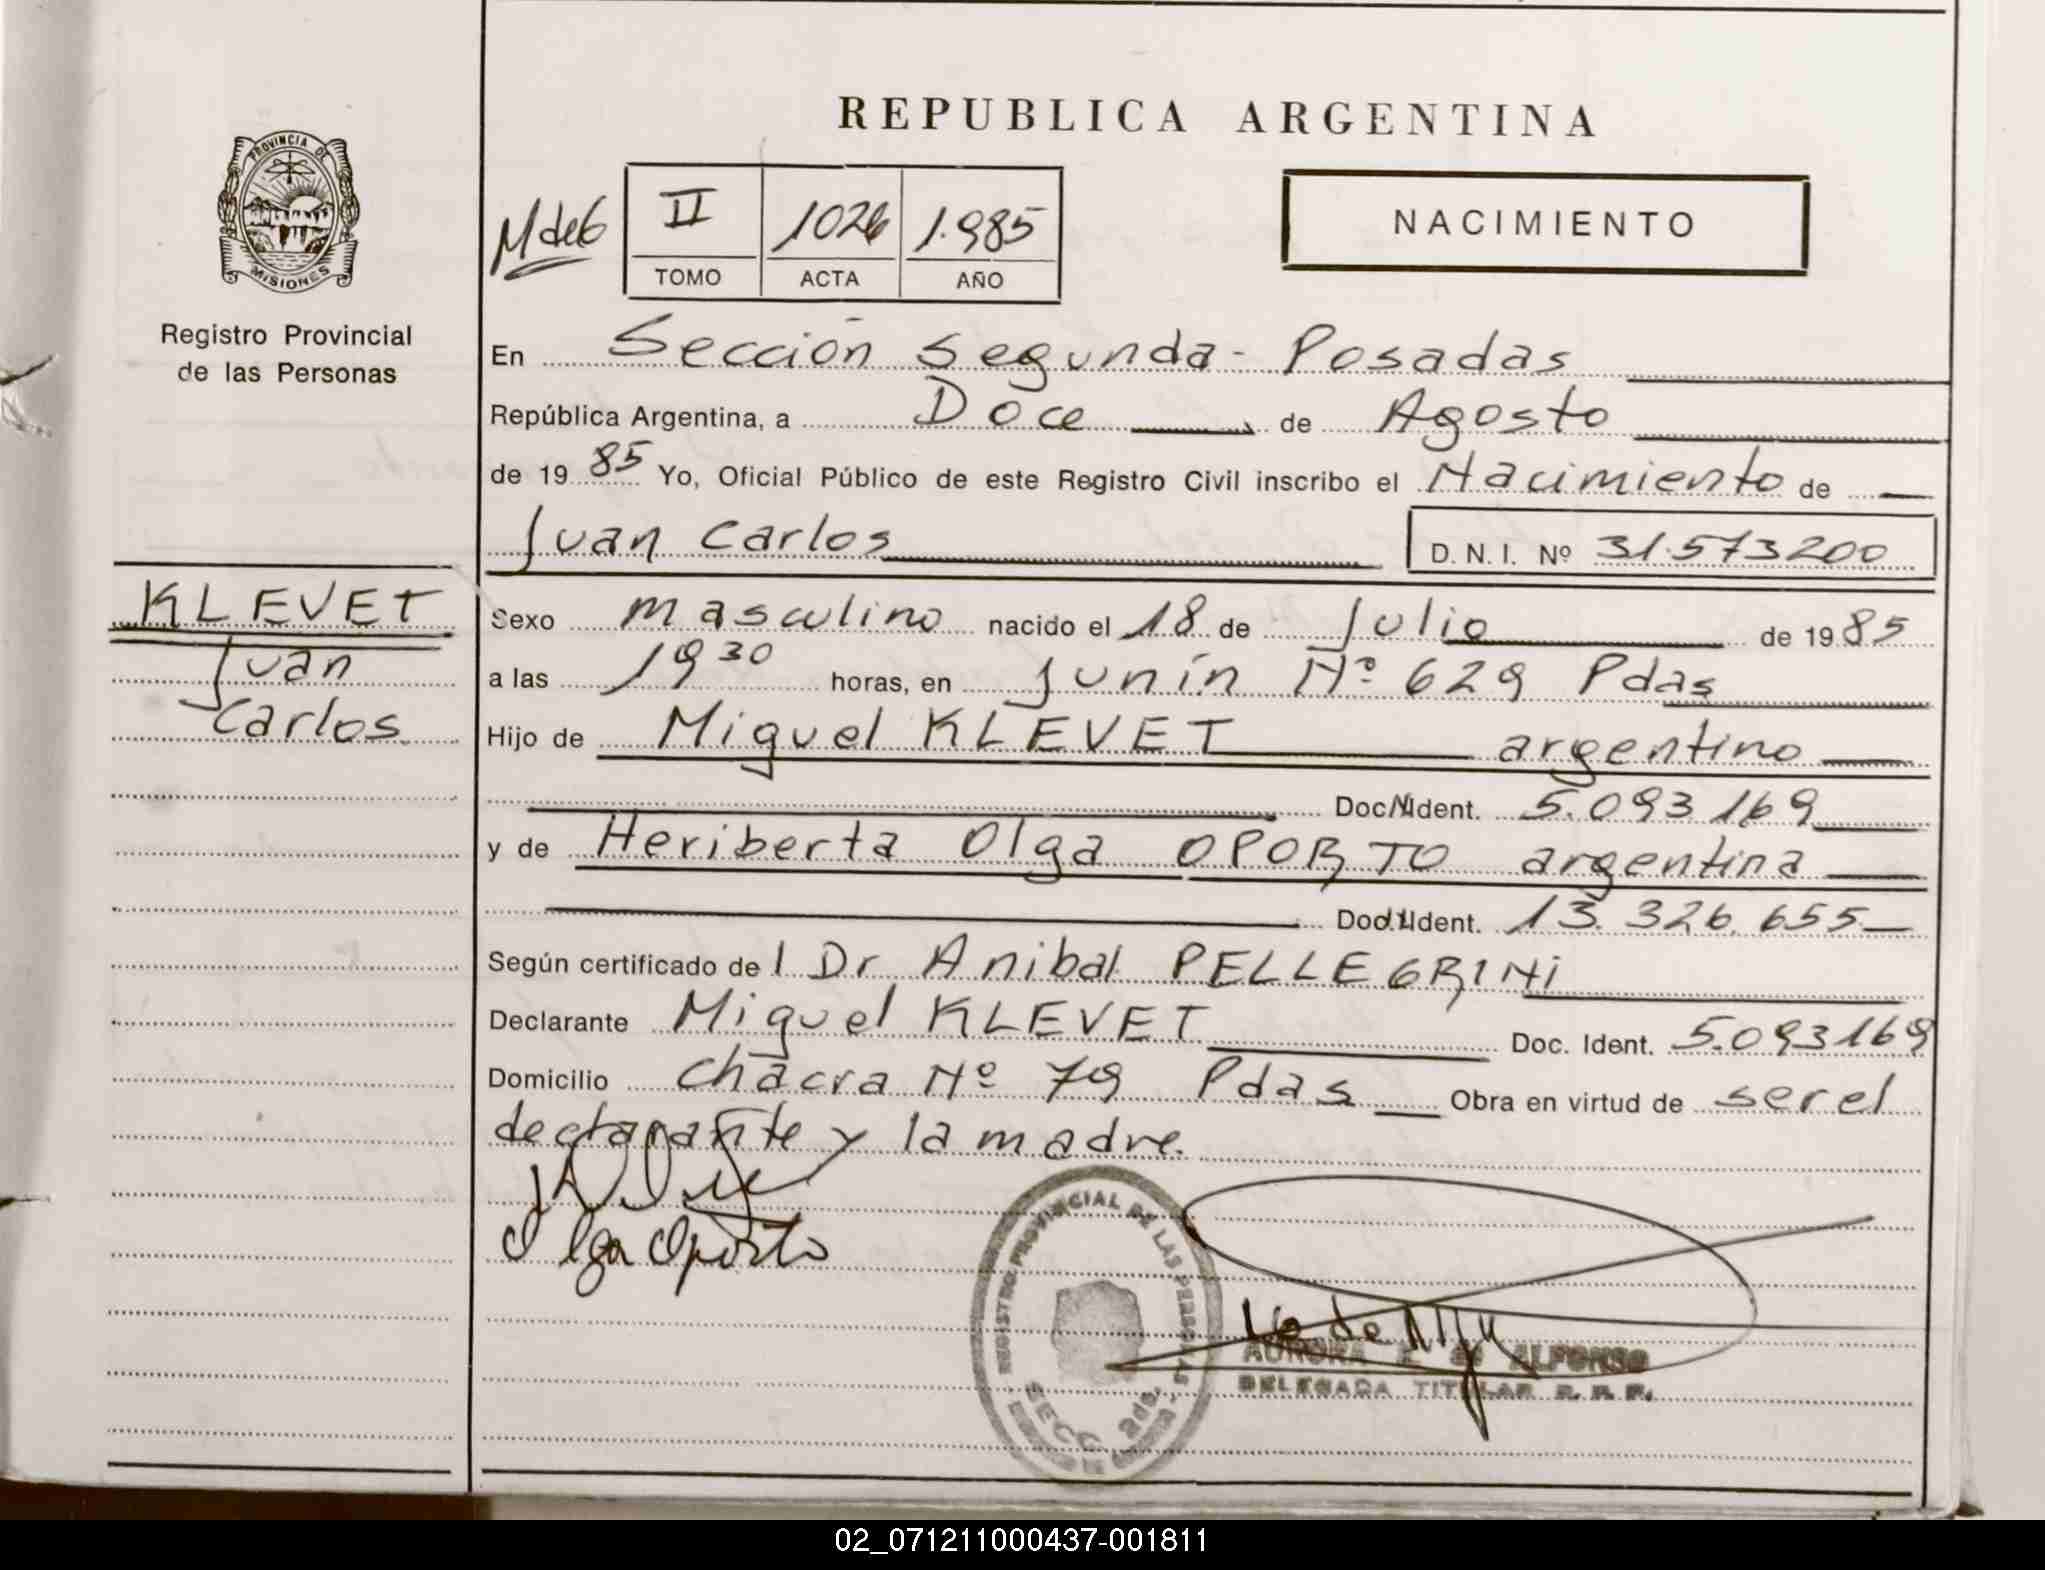 REPUBLICA ARGENTINA
PROVINCIA DE
MISIONES
Registro Provincial
de las Personas
M de G
II 1026 1.985
TOMO ACTA AÑO
NACIMIENTO
En Sección Segunda - Posadas
República Argentina, a Doce de Agosto
de 1985 Yo, Oficial Público de este Registro Civil inscribo el Nacimiento de
Juan Carlos D.N.I. Nº 31.573200
KLEVET
Juan
Carlos.
Sexo masculino nacido el 18 de Julio de 1985
a las 19 30 horas, en Junín Nº 629 Pdas
Hijo de Miguel KLEVET argentino
Doc. Ident. 5.093.169
y de Heriberta Olga OPORTO argentina
Doc. Ident. 13.326.655
Según certificado del Dr Anibal PELLEGRINI
Declarante Miguel KLEVET Doc. Ident. 5.093169
Domicilio Chacra Nº 79 Pdas Obra en virtud de ser el
declarante y la madre.
Olga Oporto
REGISTRO PROVINCIAL DE LAS PERSONAS
SECC 2da.
AURORA ALFONSO
DELEGADA TITULAR R. P. P.
02_071211000437-001811